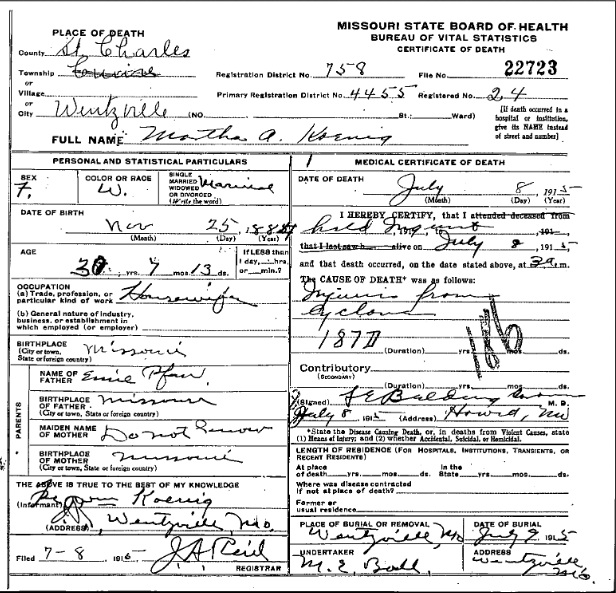 MISSOURI STATE BOARD OF HEALTH
BUREAU OF VITAL STATISTICS
CERTIFICATE OF DEATH
PLACE OF DEATH
County St. Charles
Township
or
Village
or
City Wentzville (NO. St.; Ward)
Registration District No. 758 File No. 22723
Primary Registration District No. 4455 Registered No. 24
[If death occurred in a hospital or institution, give its NAME instead of street and number]
FULL NAME Martha A. Koenig
PERSONAL AND STATISTICAL PARTICULARS
SEX F.
COLOR OR RACE W.
SINGLE MARRIED WIDOWED OR DIVORCED (Write the word) Married
DATE OF BIRTH
Nov 25, 1884
(Month) (Day) (Year)
AGE
30 yrs. 7 mos. 13 ds.
If LESS than 1 day, hrs. or min.?
OCCUPATION
(a) Trade, profession, or particular kind of work Housewife
(b) General nature of industry, business, or establishment in which employed (or employer)
BIRTHPLACE
(City or town, State or foreign country) Missouri
PARENTS
NAME OF FATHER
BIRTHPLACE OF FATHER Missouri
(City or town, State or foreign country)
MAIDEN NAME OF MOTHER Do not know
BIRTHPLACE OF MOTHER Missouri
(City or town, State or foreign country)
THE ABOVE IS TRUE TO THE BEST OF MY KNOWLEDGE
(Informant) Koenig
(ADDRESS) Wentzville, Mo.
Filed 7-8 1915 REGISTRAR
MEDICAL CERTIFICATE OF DEATH
DATE OF DEATH
July 8, 1915
(Month) (Day) (Year)
I HEREBY CERTIFY, that I attended deceased from
held Inquest 191
that I last saw h alive on July 8, 1915
and that death occurred, on the date stated above, at 3 a. m.
The CAUSE OF DEATH* was as follows:
Injuries from
Cyclone
187
186
(Duration) yrs. mos. ds.
Contributory
(SECONDARY)
(Duration) yrs. mos. ds.
(Signed) M. D.
July 8, 1915 (Address)
*State the Disease Causing Death, or, in deaths from Violent Causes, state
(1) Means of Injury; and (2) whether Accidental, Suicidal, or Homicidal.
LENGTH OF RESIDENCE (FOR HOSPITALS, INSTITUTIONS, TRANSIENTS, OR RECENT RESIDENTS)
At place of death yrs. mos. ds. In the State yrs. mos. ds.
Where was disease contracted
if not at place of death?
Former or
usual residence
PLACE OF BURIAL OR REMOVAL Wentzville, Mo
DATE OF BURIAL July 9 1915
UNDERTAKER M. E. Ball
ADDRESS Wentzville Mo.